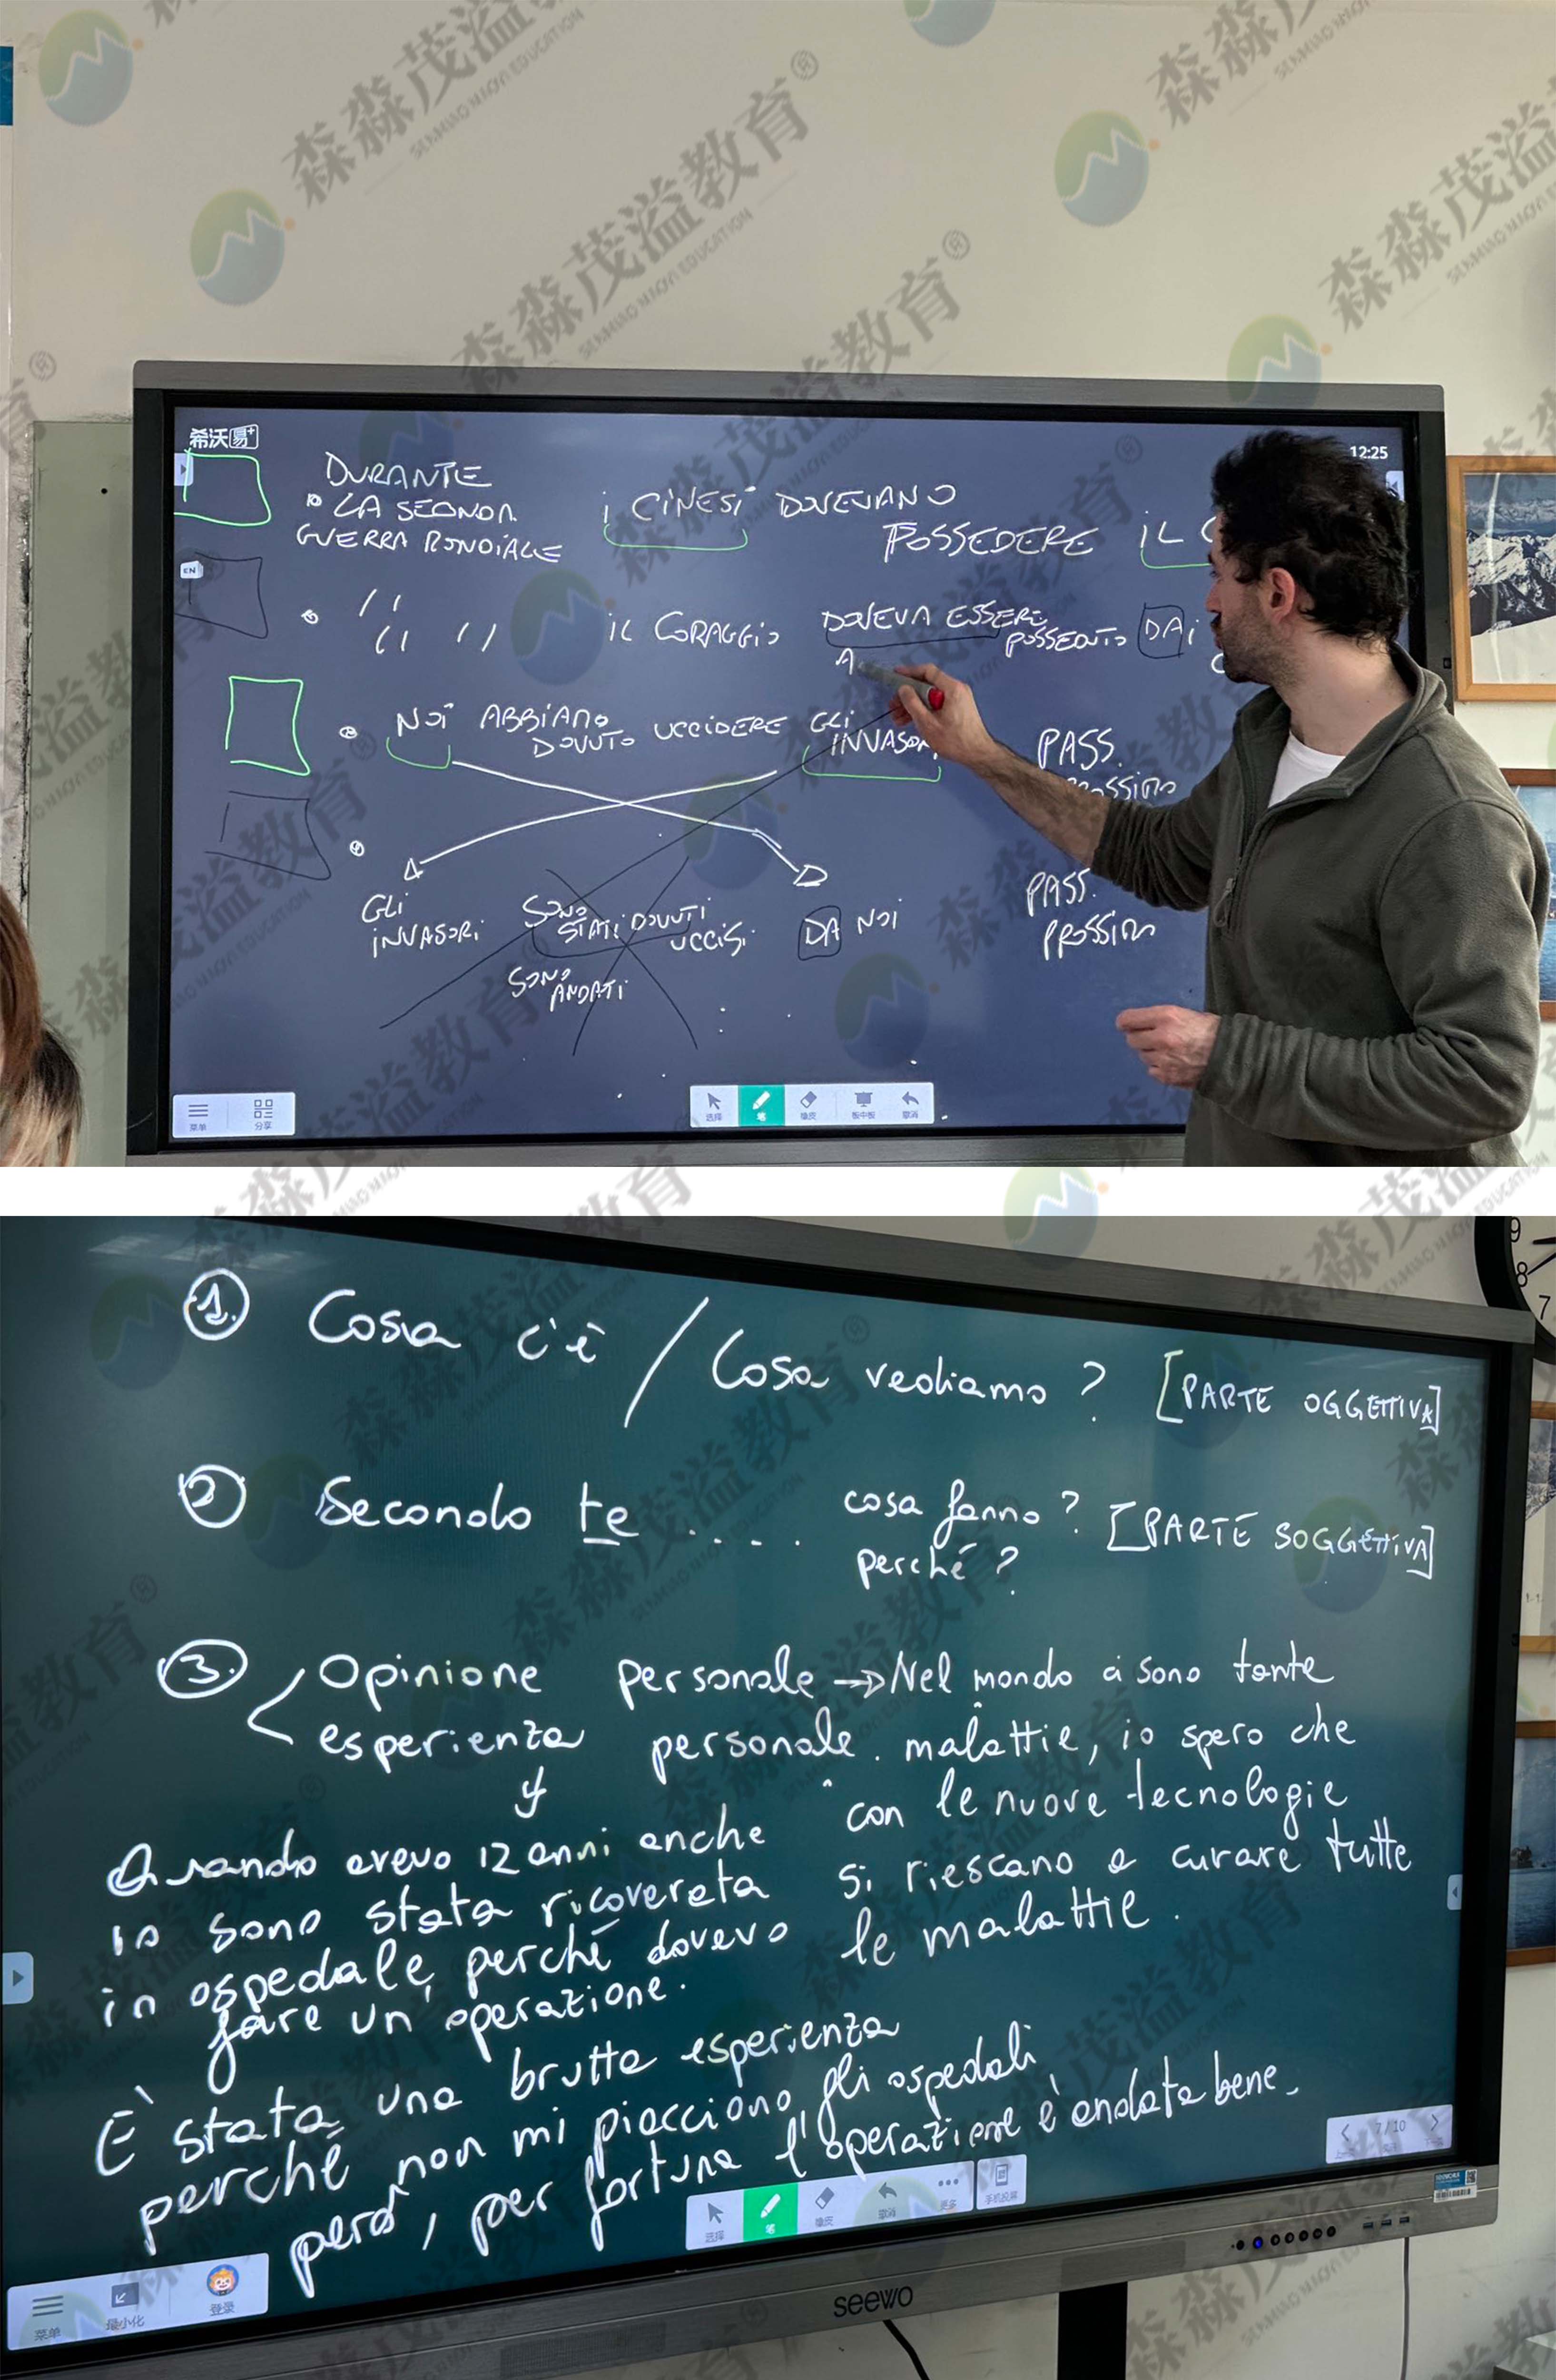 希沃易+
12:25
EN
DURANTE
LA SECONDA
GUERRA MONDIALE
i CINESI DOVEVANO
POSSEDERE IL C
IL CORAGGIO
DOVEVA ESSERE
POSSEDUTO DAI
A
NOI ABBIAMO
DOVUTO UCCIDERE GLI
INVASORI
PASS.
GLI
INVASORI
SONO
STATI DOVUTI
UCCISI
DA NOI
SONO
ANDATI
PASS.
PROSSIMO
菜单
分享
选择
笔
橡皮
板中板
撤消
1. Cosa c'è / Cosa vediamo ? [PARTE OGGETTIVA]
2 Secondo te .... cosa fanno ? [PARTE SOGGETTIVA]
perché ?
3. Opinione personale → Nel mondo ci sono tante
esperienza personale. malattie, io spero che
con le nuove tecnologie
si riescano a curare tutte
le malattie.
Quando avevo 12 anni anche
io sono stata ricoverata
in ospedale, perché dovevo
fare un'operazione.
È stata una brutta esperienza
perché non mi piacciono gli ospedali
però, per fortuna l'operazione è andata bene.
7/10
选择
笔
橡皮
撤消
更多
手机投屏
菜单
最小化
登录
seewo
9
8
7
森淼茂溢教育®
SENMIAO MAOYI EDUCATION